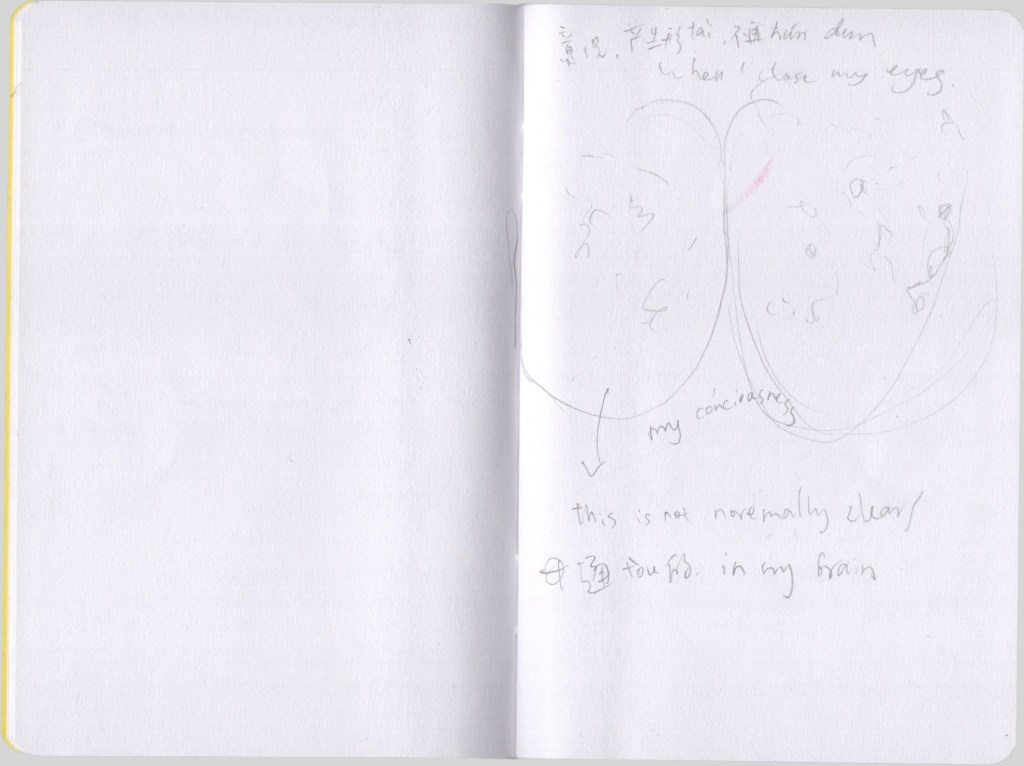 产生形tài, hún dun
when I close my eyes.
my conciousness
this is not noremally clear/
通 tòu in my brain